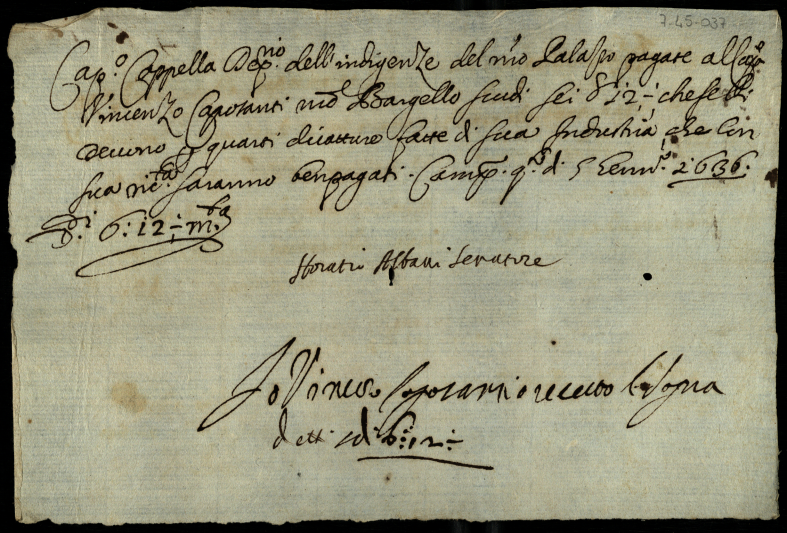 7-45-037
Cap.º Cappella Dep.rio dell'indigenze del nro Palazzo pagate al Cap.º
Vincenzo Caposanti nro Bargello scudi sei b 12 ÷ che se li
devono p quarti di catture fatte di sua Industria, che con
sua ric.ta saranno ben pagati. Camp. q.º di 5 Genn.º 1636.
6: 12 ÷ m.ta
Horatio Albani Senatore
Io Vincenzo Caposanti o receuto
detti di 6: 12 ÷